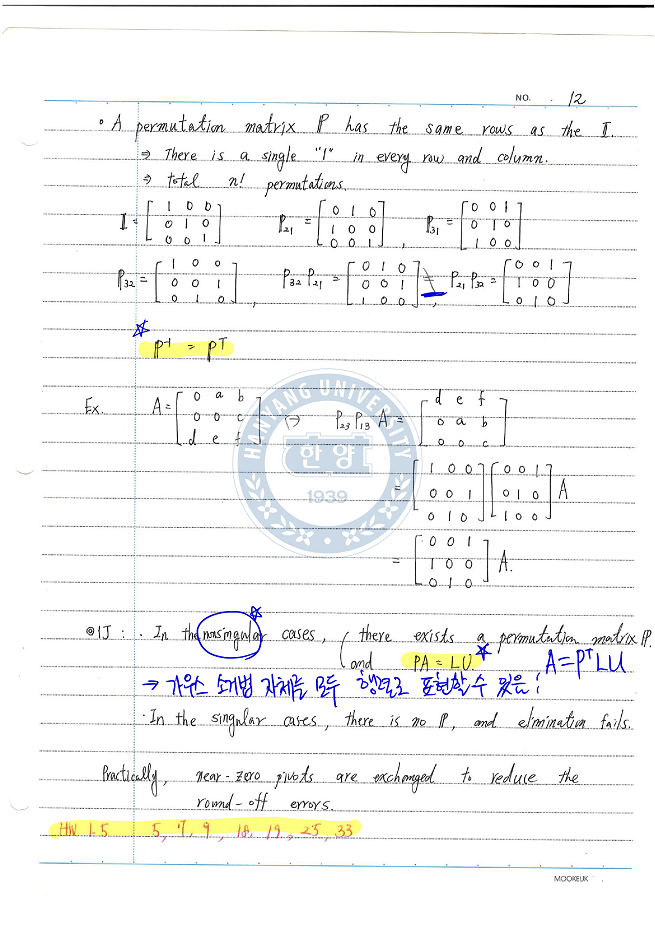 NO. 12
• A permutation matrix P has the same rows as the I.
⇒ There is a single "1" in every row and column.
⇒ total n! permutations.
I = [1 0 0; 0 1 0; 0 0 1] P₂₁ = [0 1 0; 1 0 0; 0 0 1], P₃₁ = [0 0 1; 0 1 0; 1 0 0]
P₃₂ = [1 0 0; 0 0 1; 0 1 0], P₃₂ P₂₁ = [0 1 0; 0 0 1; 1 0 0] ≠ P₂₁ P₃₂ = [0 0 1; 1 0 0; 0 1 0]
☆ P⁻¹ = Pᵀ
Ex. A = [0 a b; 0 0 c; d e f] ⇒ P₂₃ P₁₃ A = [d e f; 0 a b; 0 0 c]
= [1 0 0; 0 0 1; 0 1 0] [0 0 1; 0 1 0; 1 0 0] A
= [0 0 1; 1 0 0; 0 1 0] A.
HANYANG UNIVERSITY
한양
1939
◎ 1J : · In the nonsingular cases, there exists a permutation matrix P.
and PA = LU. ☆ A = PᵀLU
→ 가우스 소거법 자체를 모두 행렬로 표현할 수 있음!
· In the singular cases, there is no P, and elimination fails.
Practically, near-zero pivots are exchanged to reduce the
round-off errors.
HW 1.5 5, 7, 9, 18, 19, 25, 33
MOOKEUK